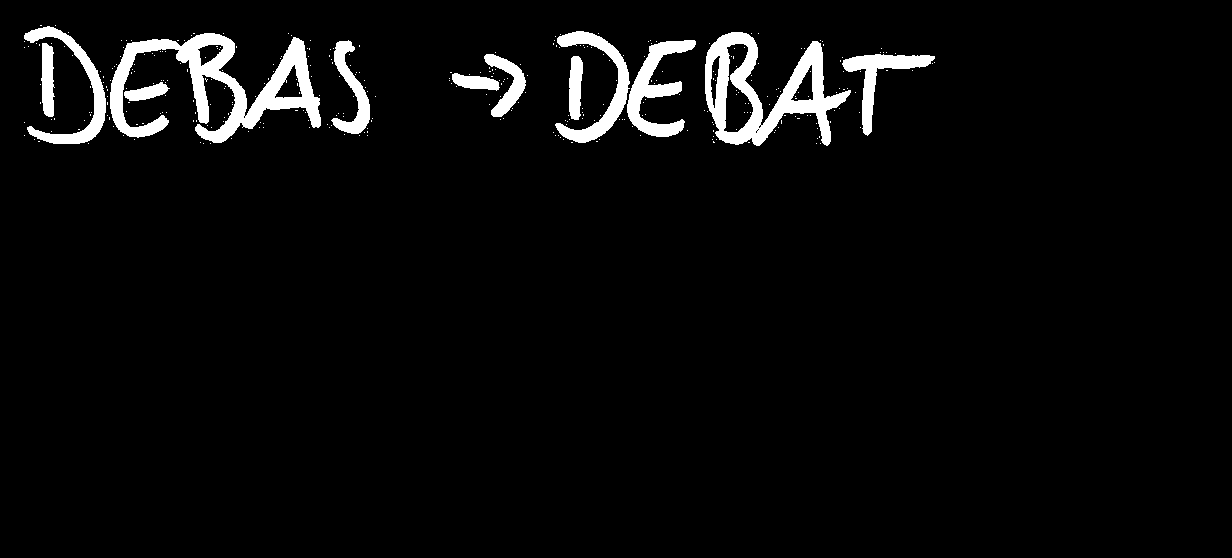 DEBAS → DEBAT